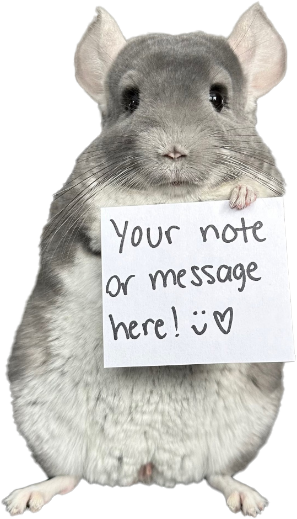 Your note
or message
here! ü♡